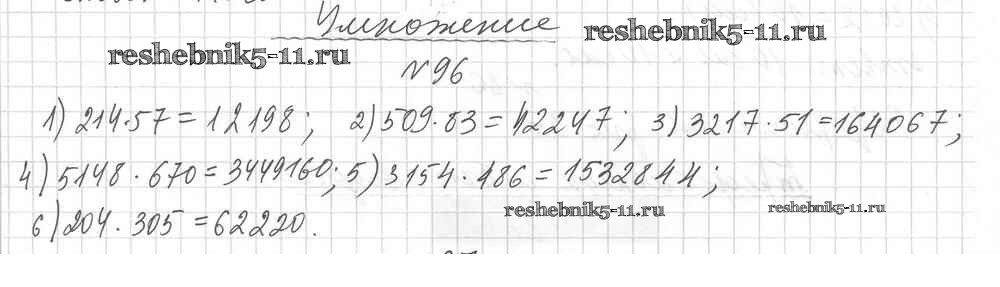 Умножение reshebnik5-11.ru
reshebnik5-11.ru
№96
1) 214·57=12198; 2) 509·83=42247; 3) 3217·51=164067;
4) 5148·670=3449160; 5) 3154·486=1532844;
reshebnik5-11.ru reshebnik5-11.ru
6) 204·305=62220.